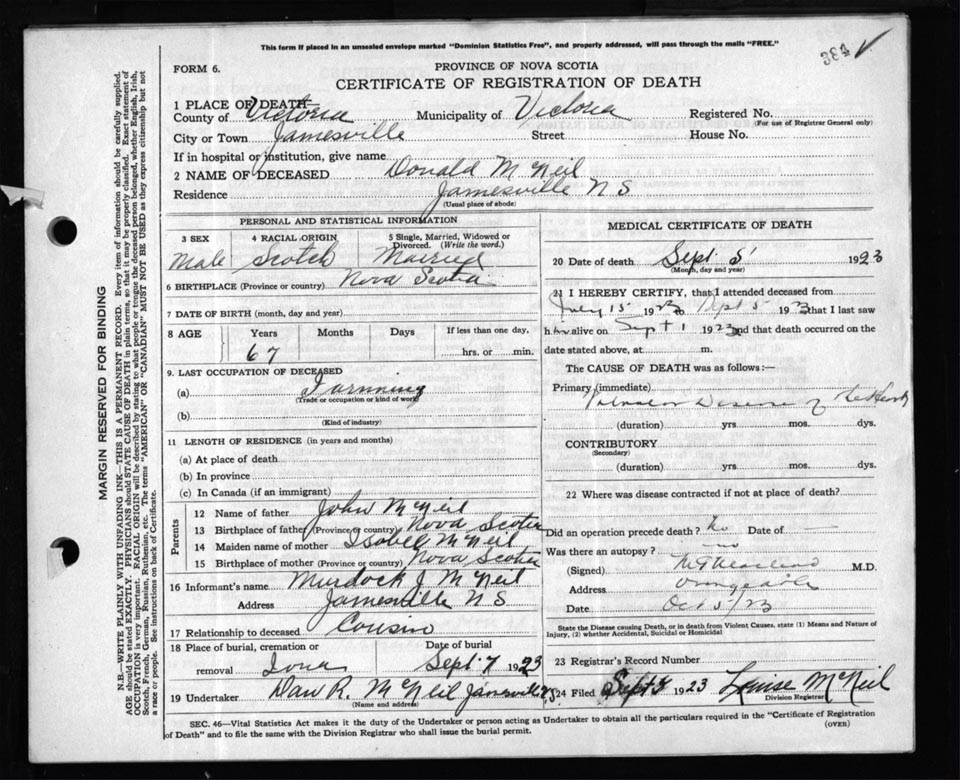 This form if placed in an unsealed envelope marked "Dominion Statistics Free", and properly addressed, will pass through the mails "FREE."
383
FORM 6.
PROVINCE OF NOVA SCOTIA
CERTIFICATE OF REGISTRATION OF DEATH
1 PLACE OF DEATH—
County of Victoria Municipality of Victoria Registered No.
(For use of Registrar General only)
City or Town Jamesville Street House No.
If in hospital or institution, give name
2 NAME OF DECEASED Donald McNeil
Residence Jamesville N S
(Usual place of abode)
PERSONAL AND STATISTICAL INFORMATION
3 SEX 4 RACIAL ORIGIN 5 Single, Married, Widowed or Divorced. (Write the word.)
Male Scotch Married
6 BIRTHPLACE (Province or country) Nova Scotia
7 DATE OF BIRTH (month, day and year)
8 AGE Years Months Days If less than one day,
67 hrs. or min.
9. LAST OCCUPATION OF DECEASED
(a) Farming
(Trade or occupation or kind of work)
(b)
(Kind of industry)
11 LENGTH OF RESIDENCE (in years and months)
(a) At place of death
(b) In province
(c) In Canada (if an immigrant)
Parents
12 Name of father John McNeil
13 Birthplace of father (Province or country) Nova Scotia
14 Maiden name of mother Isobell McNeil
15 Birthplace of mother (Province or country) Nova Scotia
16 Informant's name Murdock J. McNeil
Address Jamesville N S
17 Relationship to deceased Cousin
18 Place of burial, cremation or removal Iona Date of burial Sept. 7 1923
19 Undertaker Dan R. McNeil Jamesville N.S.
(Name and address)
MEDICAL CERTIFICATE OF DEATH
20 Date of death Sept. 5 1923
(Month, day and year)
21 I HEREBY CERTIFY, that I attended deceased from
July 15 1923 to Sept 5 1923 that I last saw
him alive on Sept 1 1923 and that death occurred on the
date stated above, at m.
The CAUSE OF DEATH was as follows:—
Primary (immediate)
Valvular Disease of the Heart
(duration) yrs. mos. dys.
CONTRIBUTORY
(Secondary)
(duration) yrs. mos. dys.
22 Where was disease contracted if not at place of death?
Did an operation precede death? No Date of
Was there an autopsy? no
(Signed) M.D.
Address
Date Oct 5/23
State the Disease causing Death, or in death from Violent Causes, state (1) Means and Nature of Injury, (2) whether Accidental, Suicidal or Homicidal
23 Registrar's Record Number
24 Filed Sept 7 1923 Louise McNeil
Division Registrar
SEC. 46—Vital Statistics Act makes it the duty of the Undertaker or person acting as Undertaker to obtain all the particulars required in the "Certificate of Registration
of Death" and to file the same with the Division Registrar who shall issue the burial permit. (OVER)
MARGIN RESERVED FOR BINDING
N.B.—WRITE PLAINLY WITH UNFADING INK—THIS IS A PERMANENT RECORD. Every item of information should be carefully supplied.
AGE should be stated EXACTLY. PHYSICIANS should STATE CAUSE OF DEATH in plain terms, so that it may be properly classified. Exact statement of
OCCUPATION is very important. RACIAL ORIGIN will be described by stating to what people or tongue the deceased person belonged, whether English, Irish,
Scotch, French, German, Russian, Ruthenian, etc. The terms "AMERICAN" or "CANADIAN" MUST NOT BE USED as they express citizenship but not
a race or people. See instructions on back of Certificate.